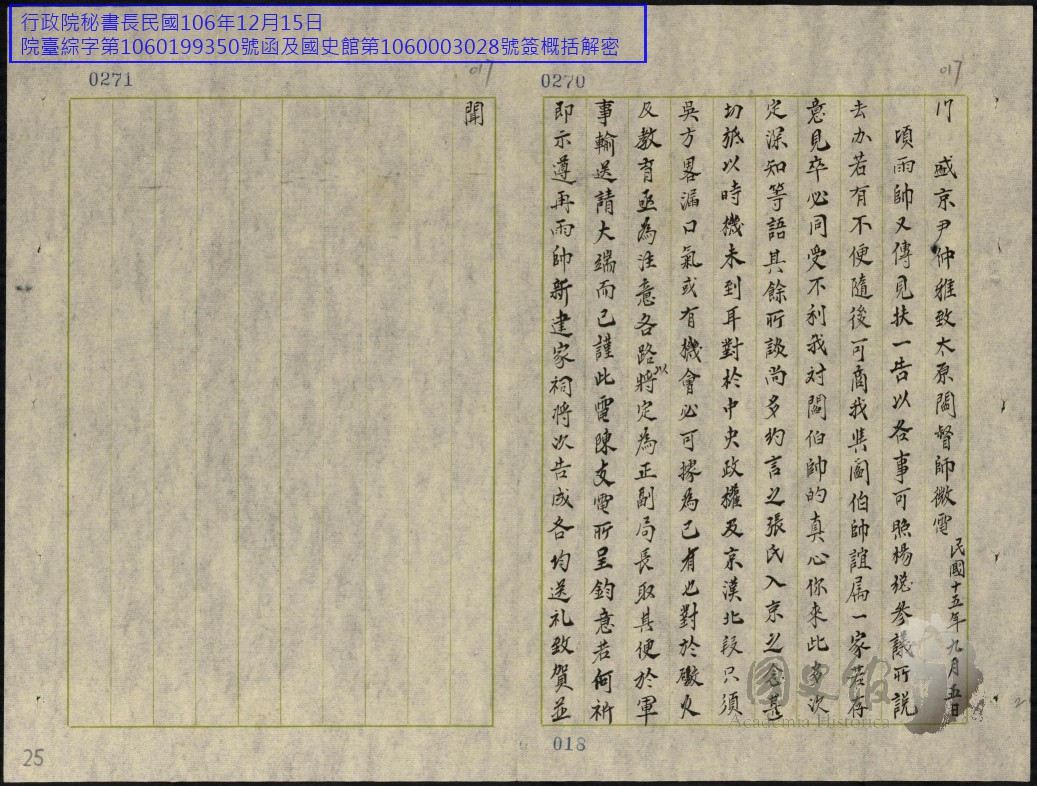 行政院秘書長民國106年12月15日
院臺綜字第1060199350號函及國史館第1060003028號簽概括解密
0271
017
0270
017
盛京尹仲雅致太原閻督師微電 民國十五年九月五日
頃雨帥又傳見扶一告以各事可照楊總參議所説
去办若有不便隨後可商我與閻伯帥誼屬一家若存
意見卒必同受不利我对閻伯帥的真心你來此多次
定深知等語其餘所談尚多約言之張氏入京之念甚
切祇以時機未到耳對於中央政權及京漢北段只須
吳方畧漏口氣或有機會必可據為己有也對於礮火
及教育亟為注意各路將以定為正副局長取其便於軍
事輸送請大端而已謹此電陳支電所呈鈞意若何祈
即示遵再雨帥新建家祠將次告成各均送礼致賀並
聞
國史館
Academia Historica
018
25